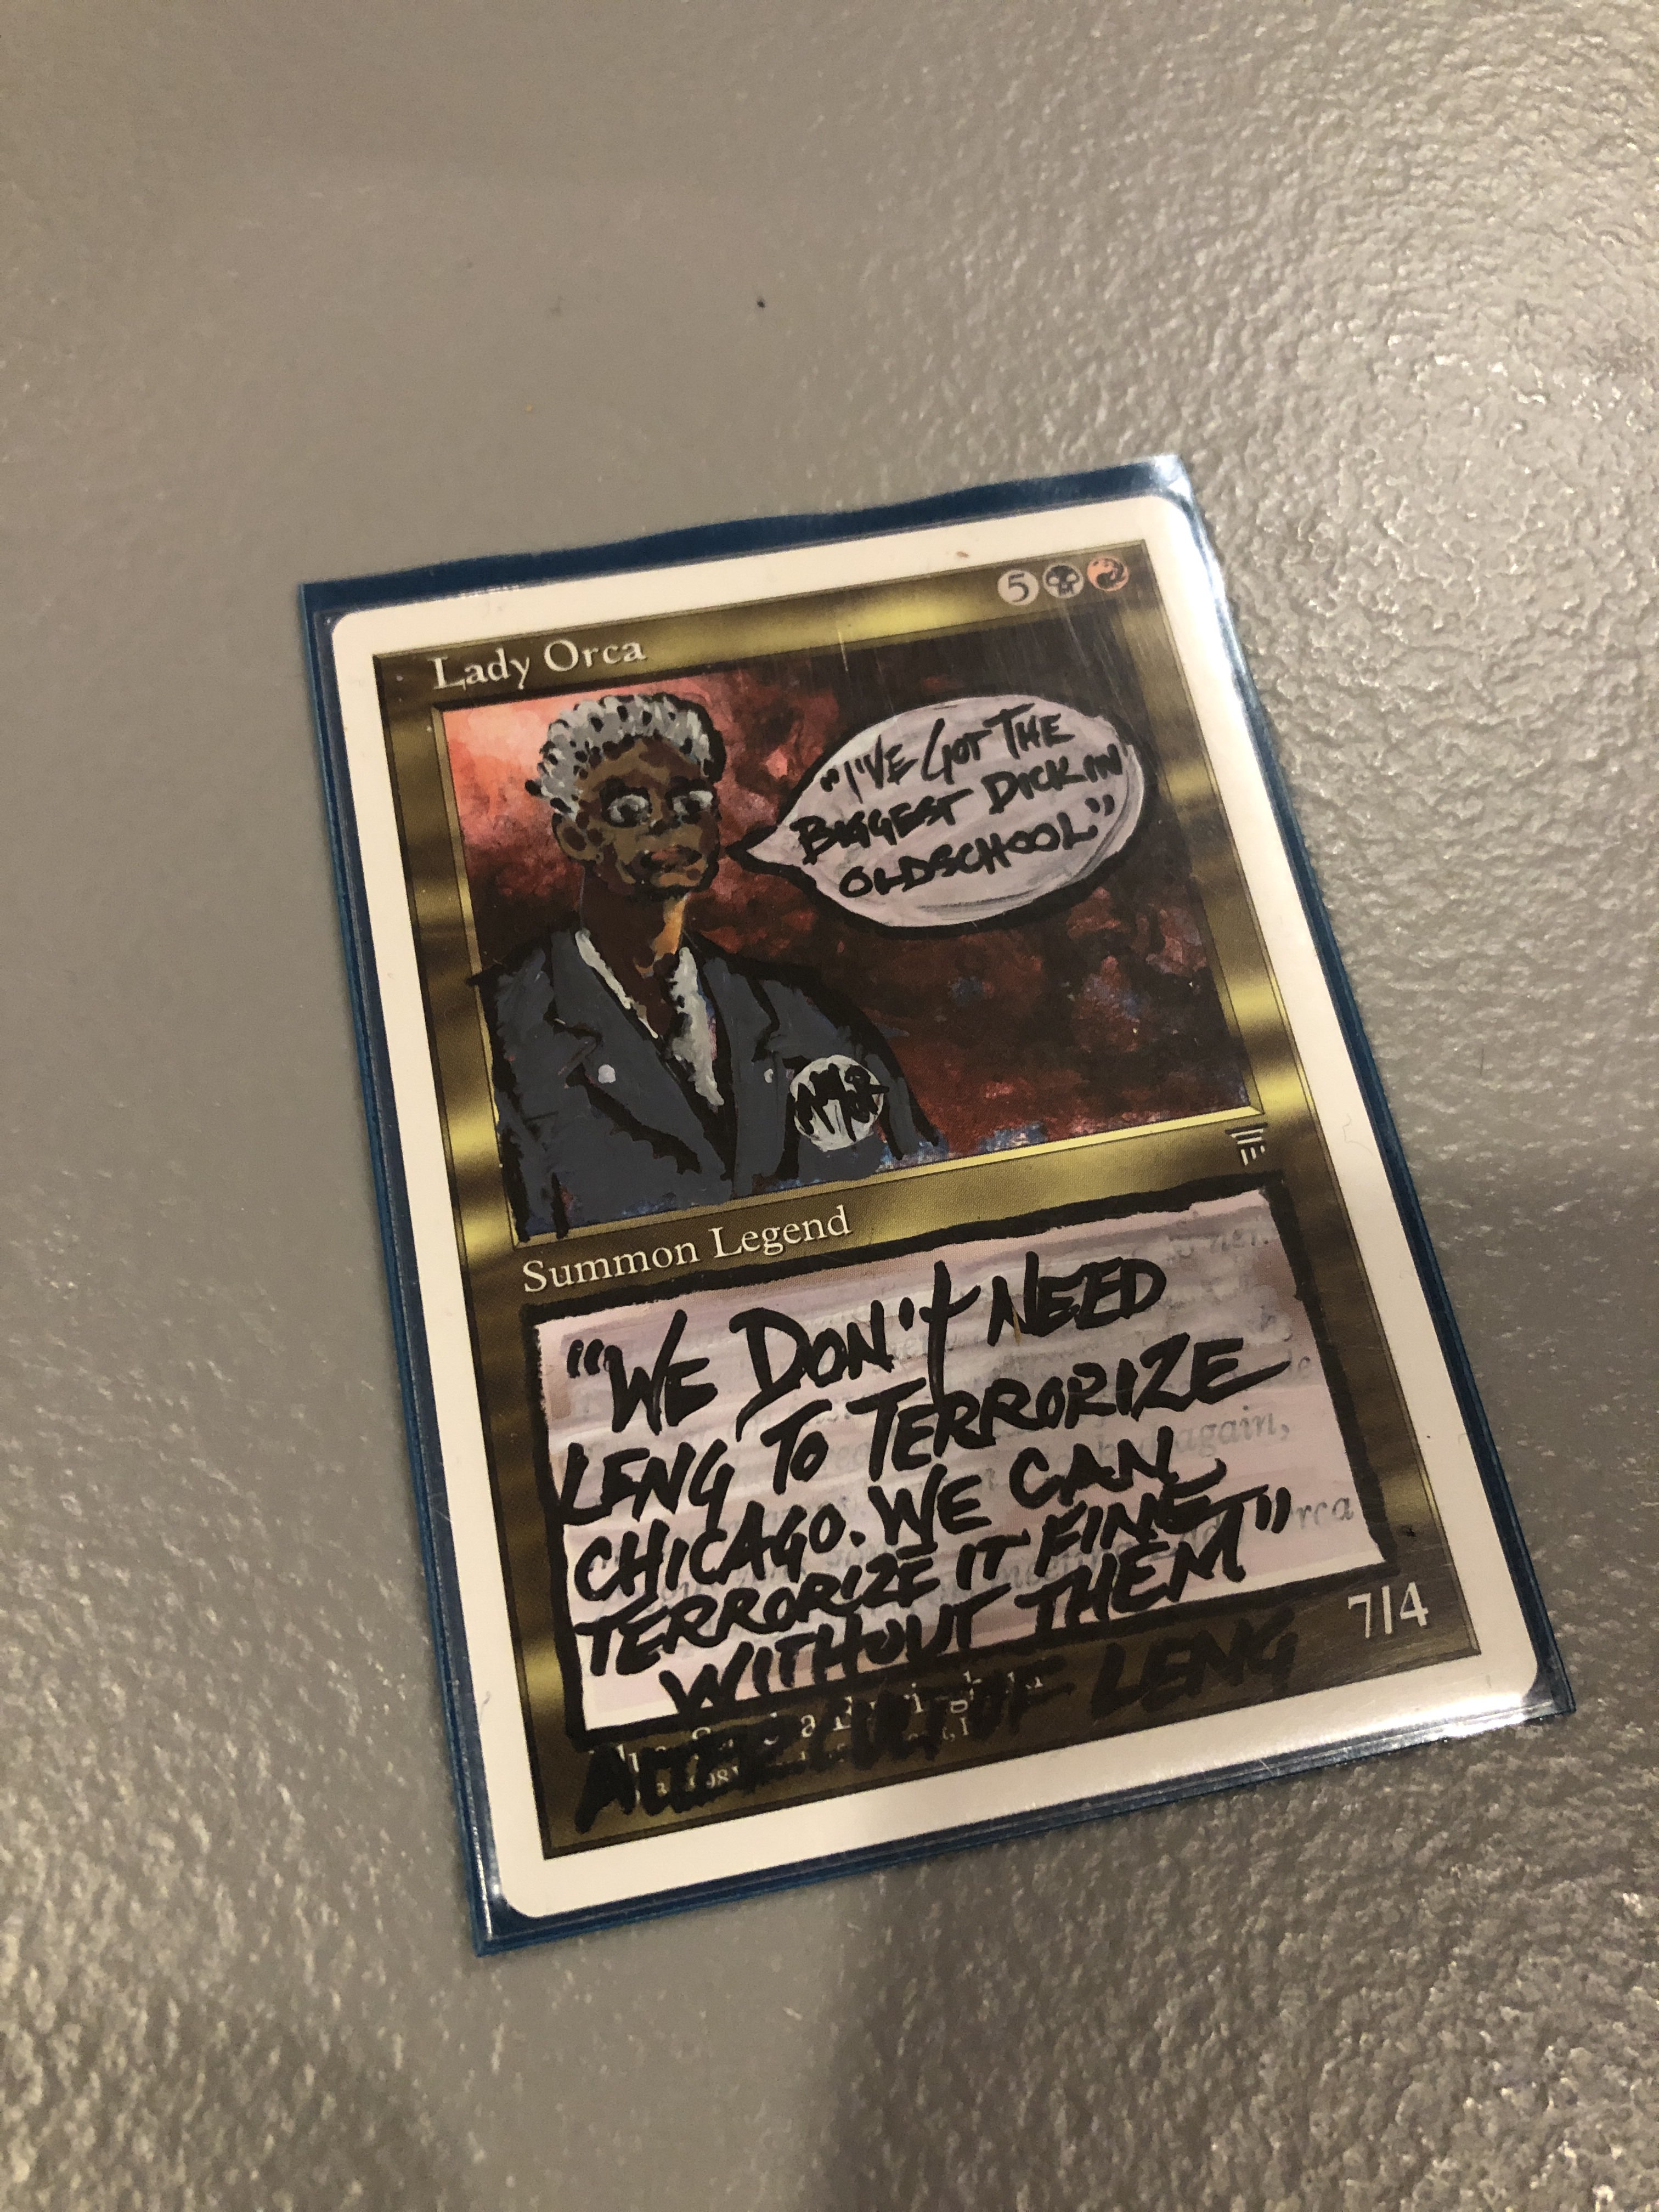 Lady Orca
5
"I'VE GOT THE
BIGGEST DICK IN
OLDSCHOOL"
Summon Legend
"WE DON't NEED
LENG TO TERRORIZE
CHICAGO. WE CAN
TERRORIZE IT FINE
WITHOUT THEM"
again,
rca
7/4
CULT OF LENG